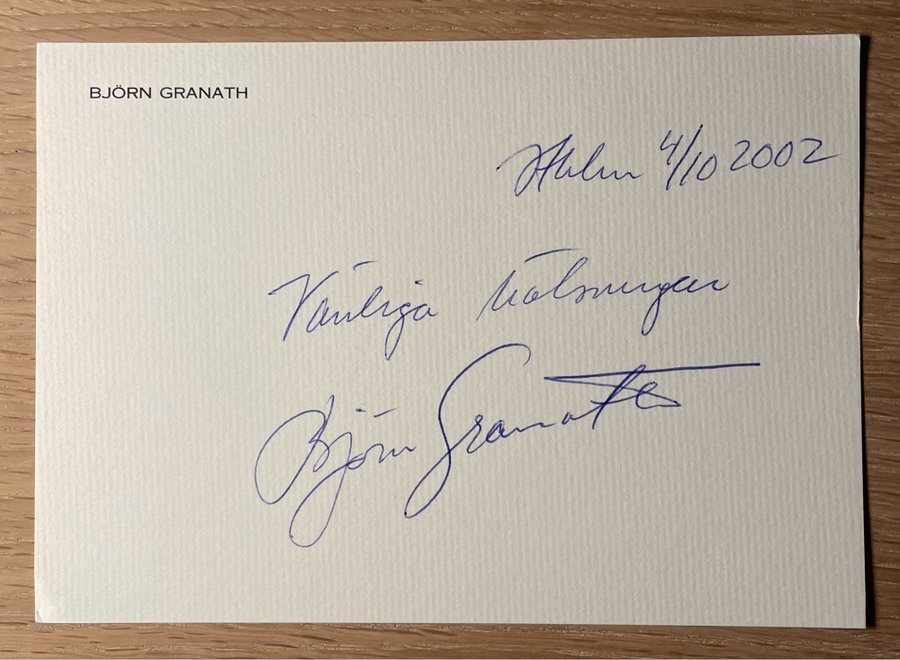 BJÖRN GRANATH
Sthlm 4/10 2002
Vänliga hälsningar
Björn Granath